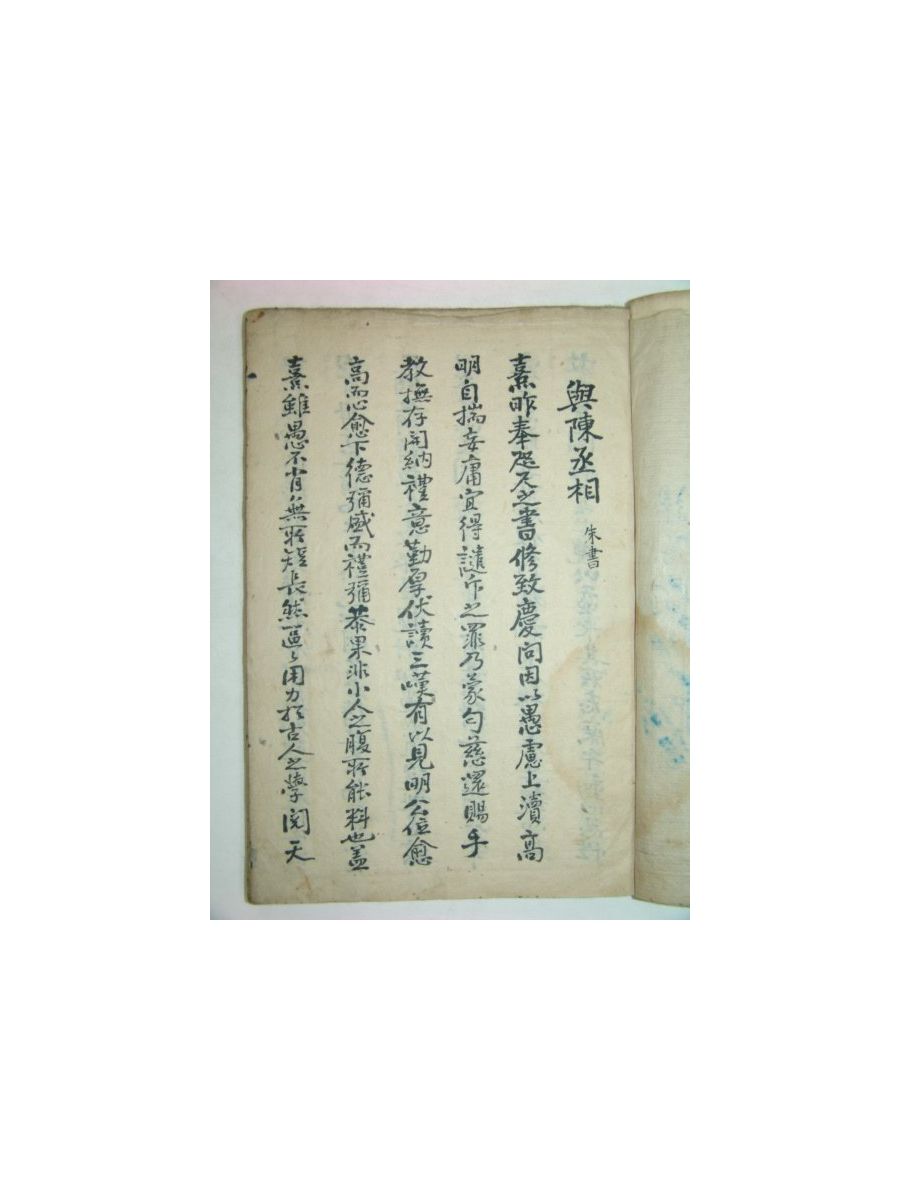 與陳丞相 朱書
熹昨奉咫尺之書修致慶問因以愚慮上瀆高
明自揣妄庸宜得譴斥之罪乃蒙勻慈還賜手
教撫存開納禮意勤厚伏讀三嘆有以見明公位愈
高而心愈下德彌盛而禮彌恭果非小人之腹所能料也盖
熹雖愚不肖無所短長然區〻用力於古人之學閔天